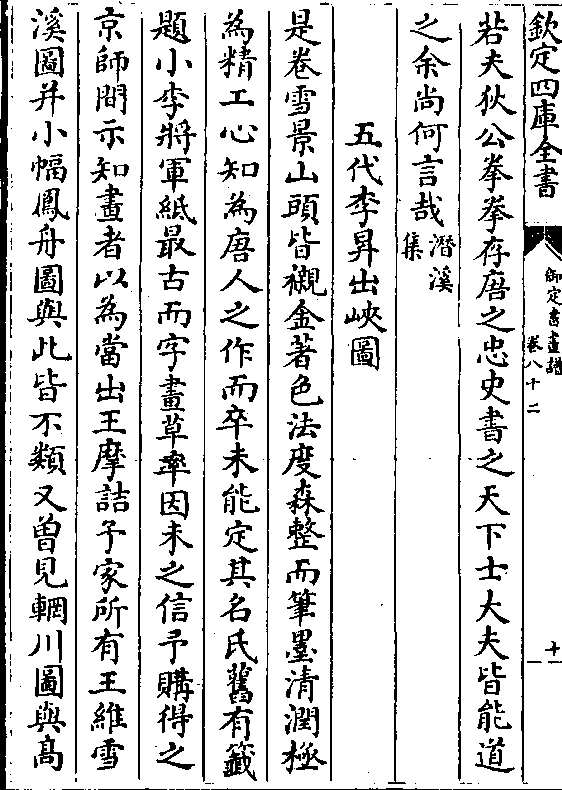 欽定四庫全書
御定書畫譜
卷八十二
十
若夫狄公拳拳存唐之忠史書之天下士大夫皆能道
之余尚何言哉潛溪集
五代李昇出峽圖
是卷雪景山頭皆襯金著色法度森整而筆墨清潤極
為精工心知為唐人之作而卒未能定其名氏舊有籤
題小李將軍紙最古而字畫草率因未之信予購得之
京師間示知畫者以為當出王摩詰予家所有王維雪
溪圖并小幅鳳舟圖與此皆不類又曽見輞川圖與高